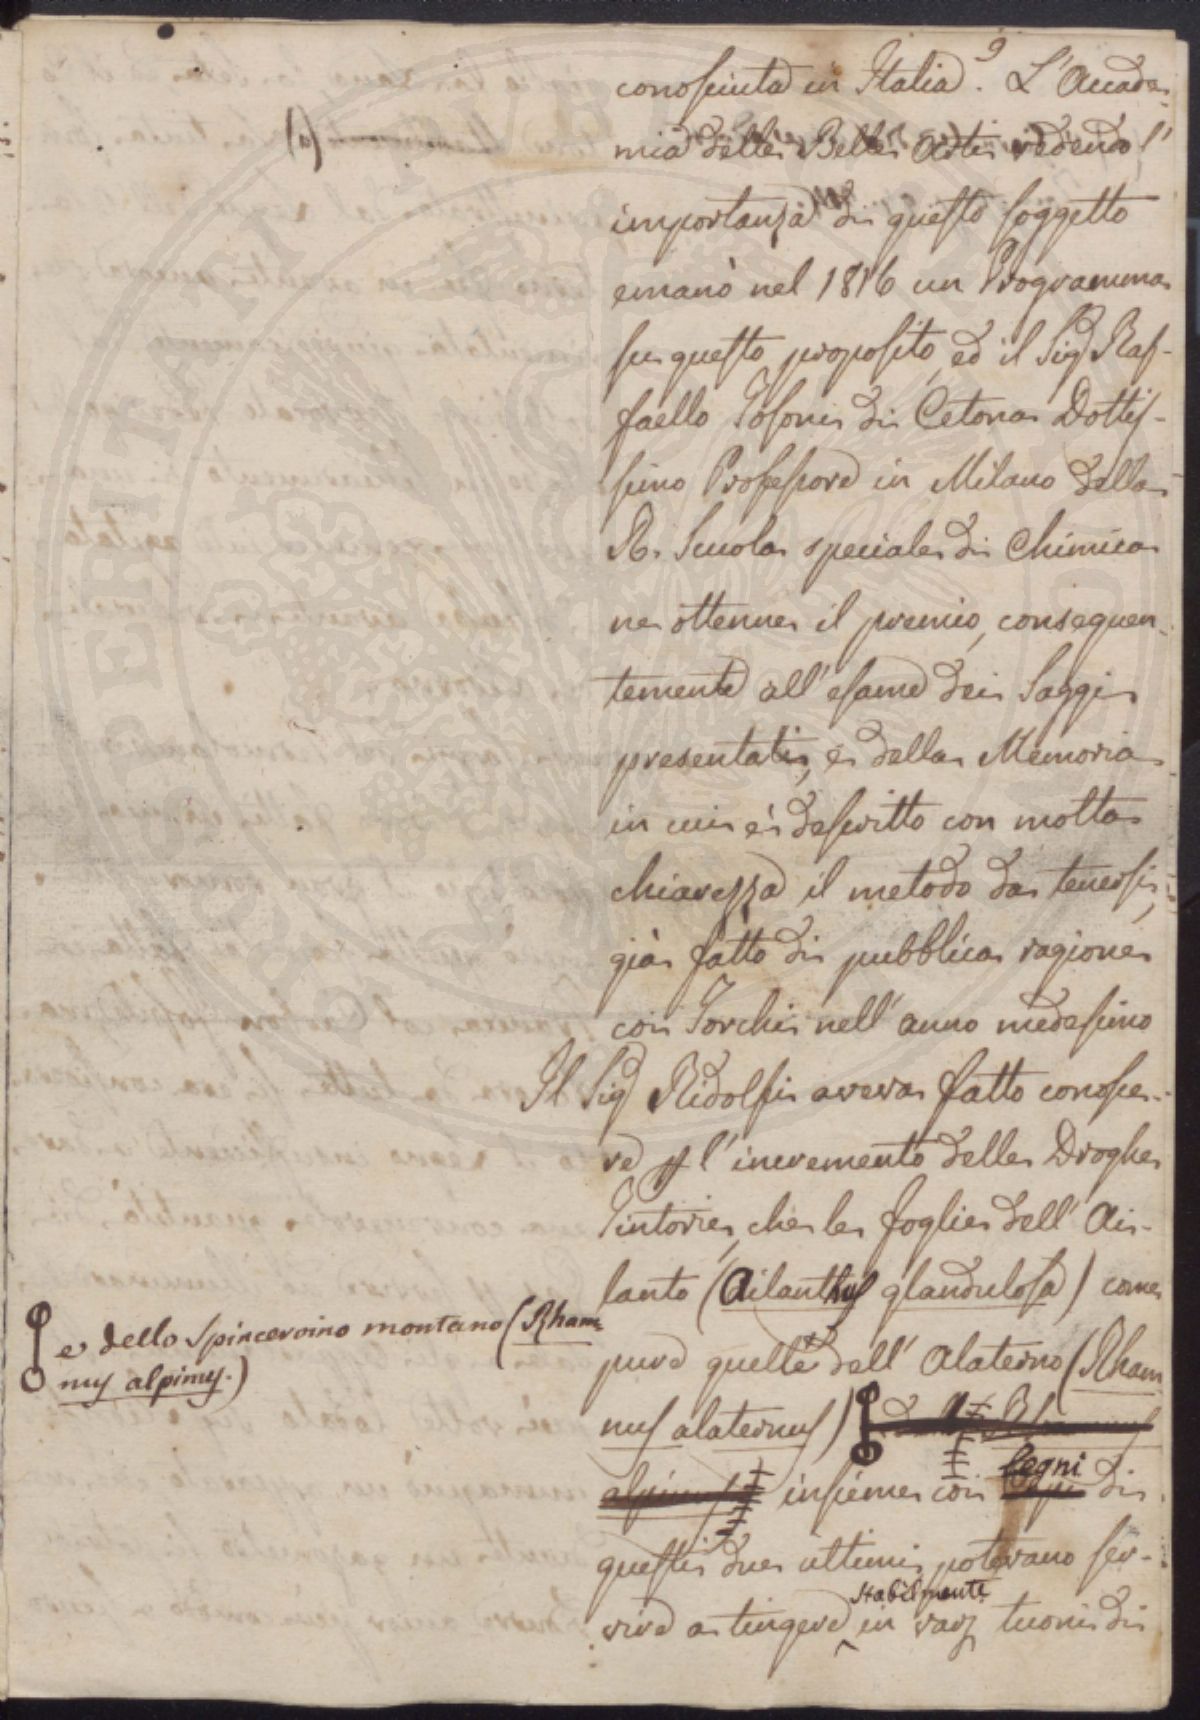 9
conosciuta in Italia. L'Accade-
mia delle Belle Arti vedendo l'
importanza di questo soggetto
emanò nel 1816 un Programma
su questo proposito, ed il Sig Raf-
faello Tosoni di Cetona Dottis-
simo Professore in Milano della
R. Scuola speciale di Chimica
ne ottenne il premio, conseguen-
temente all'esame dei Saggi
presentati, e della Memoria
in cui è descritto con molta
chiarezza il metodo da tenersi,
già fatto di pubblica ragione
coi Torchi nell'anno medesimo
Il Sig Ridolfi aveva fatto conosce-
re p l'incremento delle Droghe
Tintorie, che le foglie dell'Ai-
lanto (Ailanthus glandulosa) come
pure quelle dell'Alaterno (Rham
nus alaternus)
e dello Spincervino montano (Rham-
nus alpinus.)
alpinus insieme coi legni di
questi due ultimi, potevano ser-
vire a tingere stabilmente in varj tuoni di